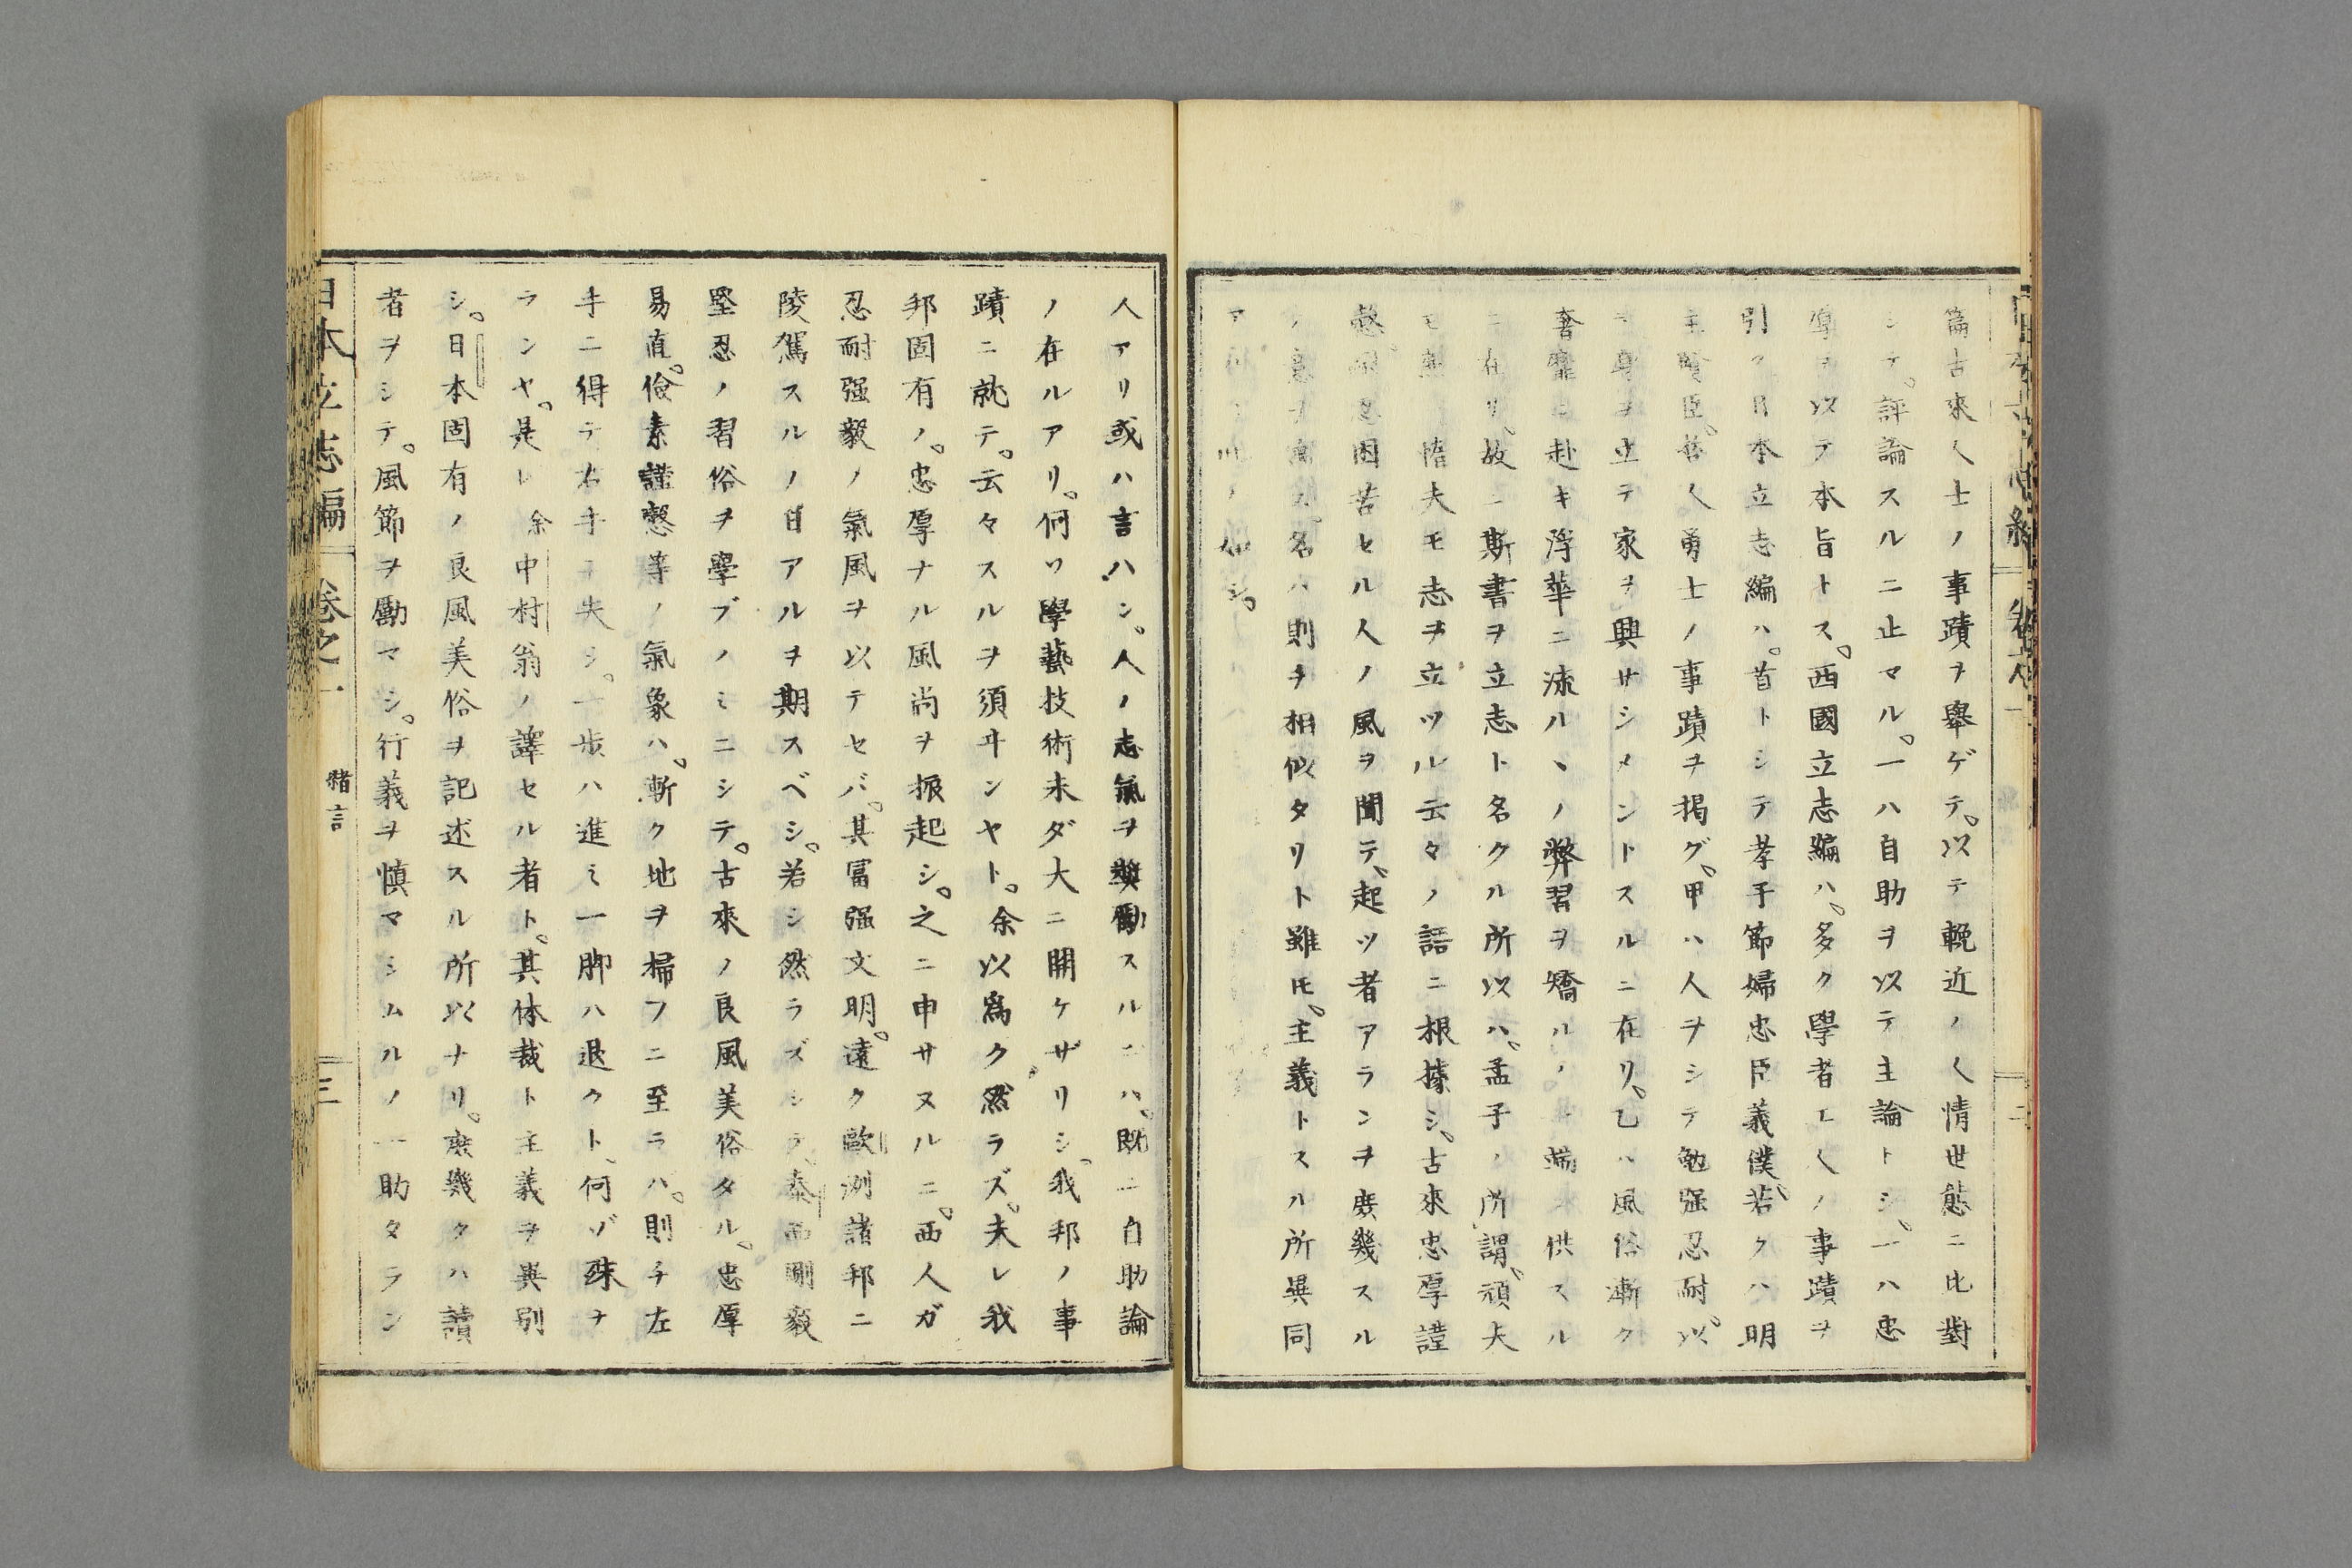 篇古來人士ノ事蹟ヲ舉ゲテ。以テ輓近ノ人情世態ニ比對
シテ。評論スルニ止マル。一ハ自助ヲ以テ主論トシ、一ハ忠
厚ヲ以テ本旨トス。西國立志編ハ。多ク學者工人ノ事蹟ヲ
引ク日本立志編ハ。首トシテ孝子節婦忠臣義僕、若クハ明
主賢臣、哲人勇士ノ事蹟ヲ揭グ。甲ハ人ヲシテ勉强忍耐。以
テ身ヲ立テ家ヲ興サシメントスルニ在リ。乙ハ風俗漸ク
奢靡ニ赴キ浮華ニ流ル丶ノ弊習ヲ矯ルノ一端ニ供スル
ニ在リ、故ニ斯書ヲ立志ト名クル所以ハ。孟子ノ所謂、頑夫
モ懦夫モ志ヲ立ツル云々ノ語ニ根據シ、古來忠厚謹
慤困苦セル人ノ風ヲ聞テ、起ツ者アランヲ庶幾スル
ノ意ヲ寓ス。名ハ則チ相似タリト雖モ。主義トスル所異同
ア
人アリ或ハ言ハン。人ノ志氣ヲ奬勵スルニハ、既ニ自助論
ノ在ルアリ。何ソ學藝技術未ダ大ニ開ケザリシ、我邦ノ事
蹟ニ就テ。云々スルヲ須ヰンヤト。余以爲ク然ラズ。夫レ我
邦固有ノ。忠厚ナル風尚ヲ振起シ。之ニ申サヌルニ。西人ガ
忍耐强毅ノ氣風ヲ以テセバ。其冨强文明。遠ク歐洲諸邦ニ
陵駕スルノ日アルヲ期スベシ。若シ然ラズシテ、泰西剛毅
堅忍ノ習俗ヲ學ブノミニシテ。古來ノ良風美俗タル。忠厚
易直。儉素謹慤等ノ氣象ハ。漸ク地ヲ掃フニ至ラバ。則チ左
手ニ得テ右手ニ失シ。一步ハ進ミ一脚ハ退クト、何ゾ殊ナ
ランヤ。是レ余中村翁ノ譯セル者ト。其体裁ト主義ヲ異別
シ。日本固有ノ良風美俗ヲ記述スル所以ナリ。庶幾クハ讀
者ヲシテ。風節ヲ勵マシ。行義ヲ愼マシムルノ一助タラン
日本立志編 卷之一 緖言 三